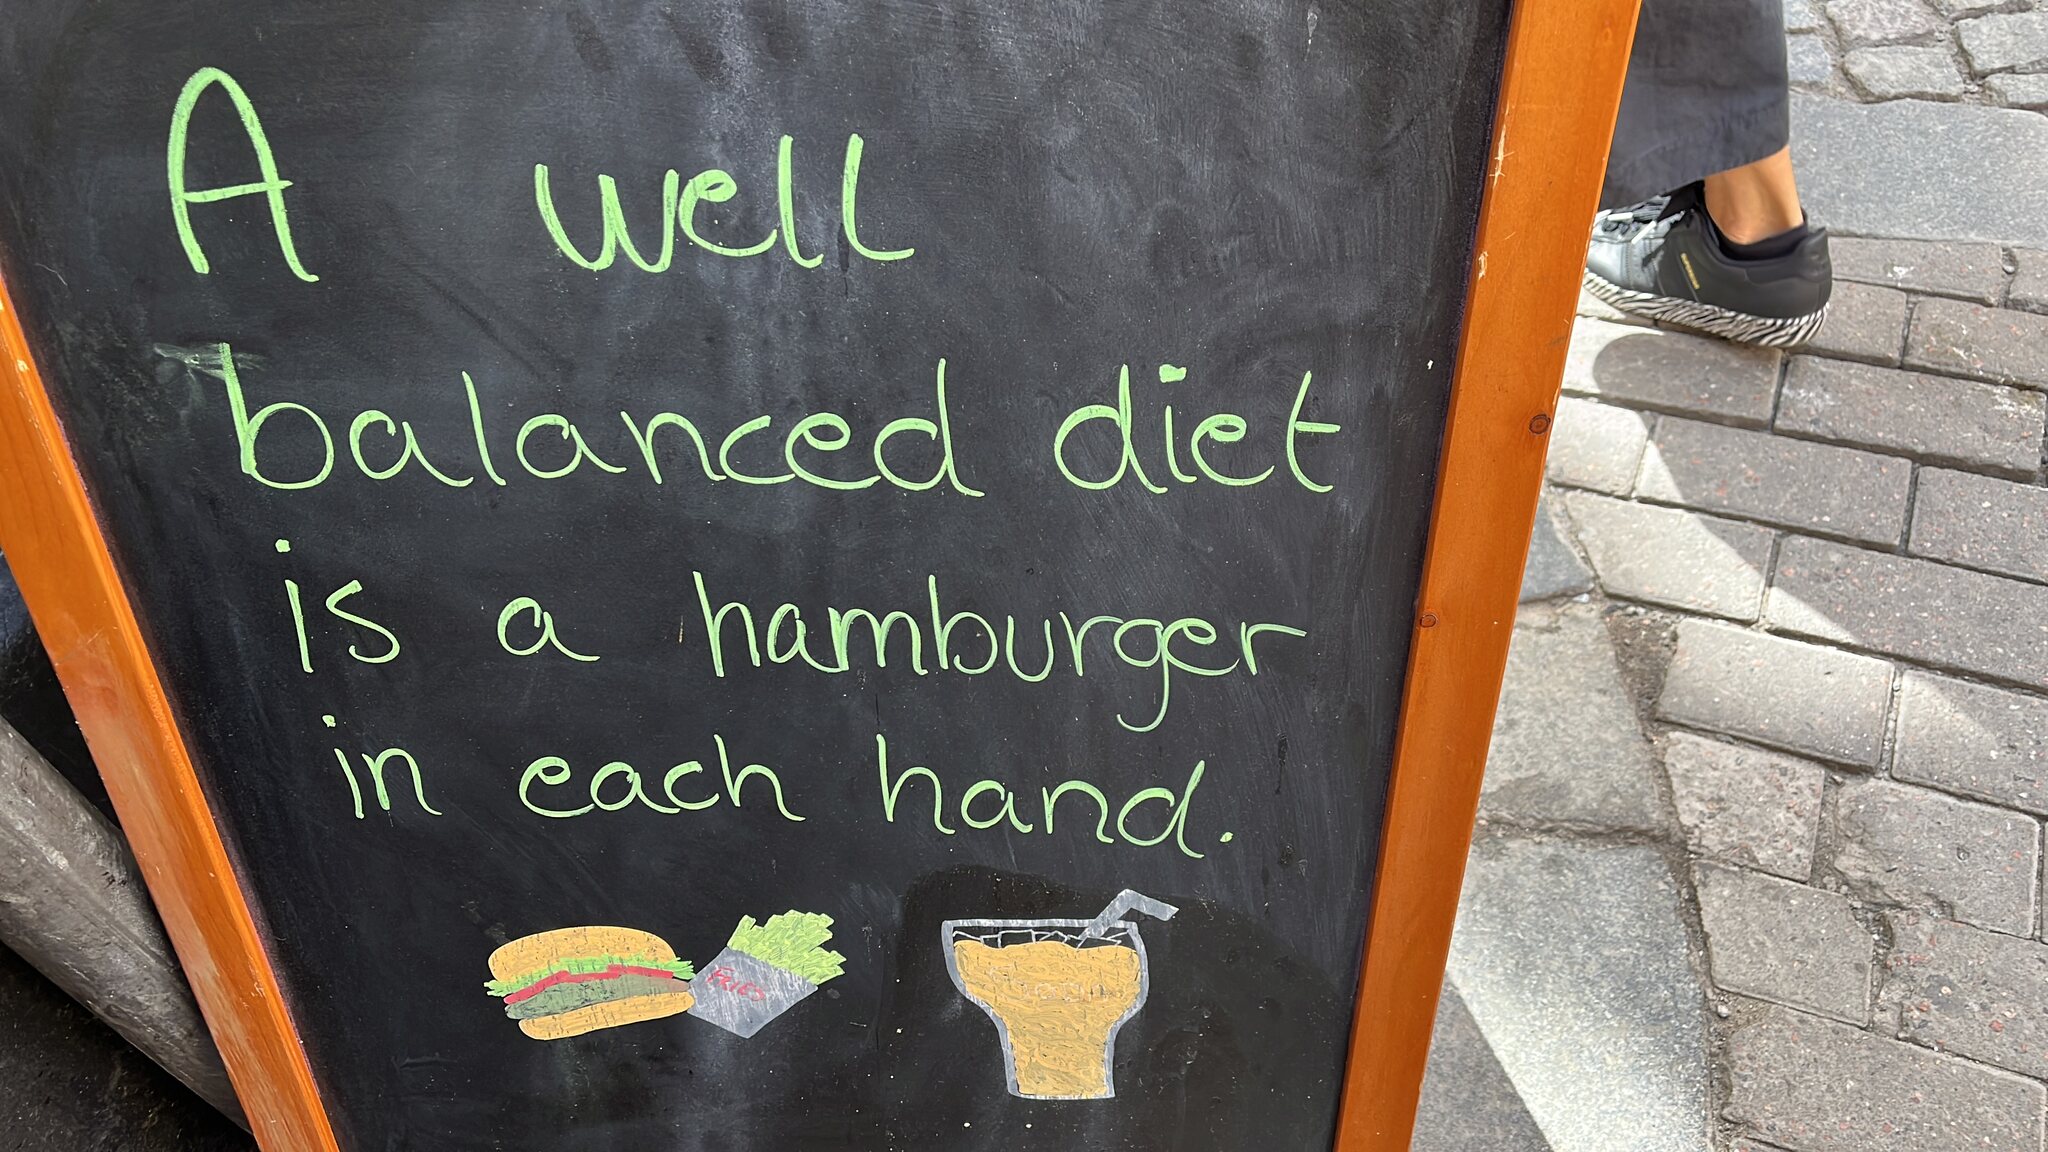 A well
balanced diet
is a hamburger
in each hand.
FRIES